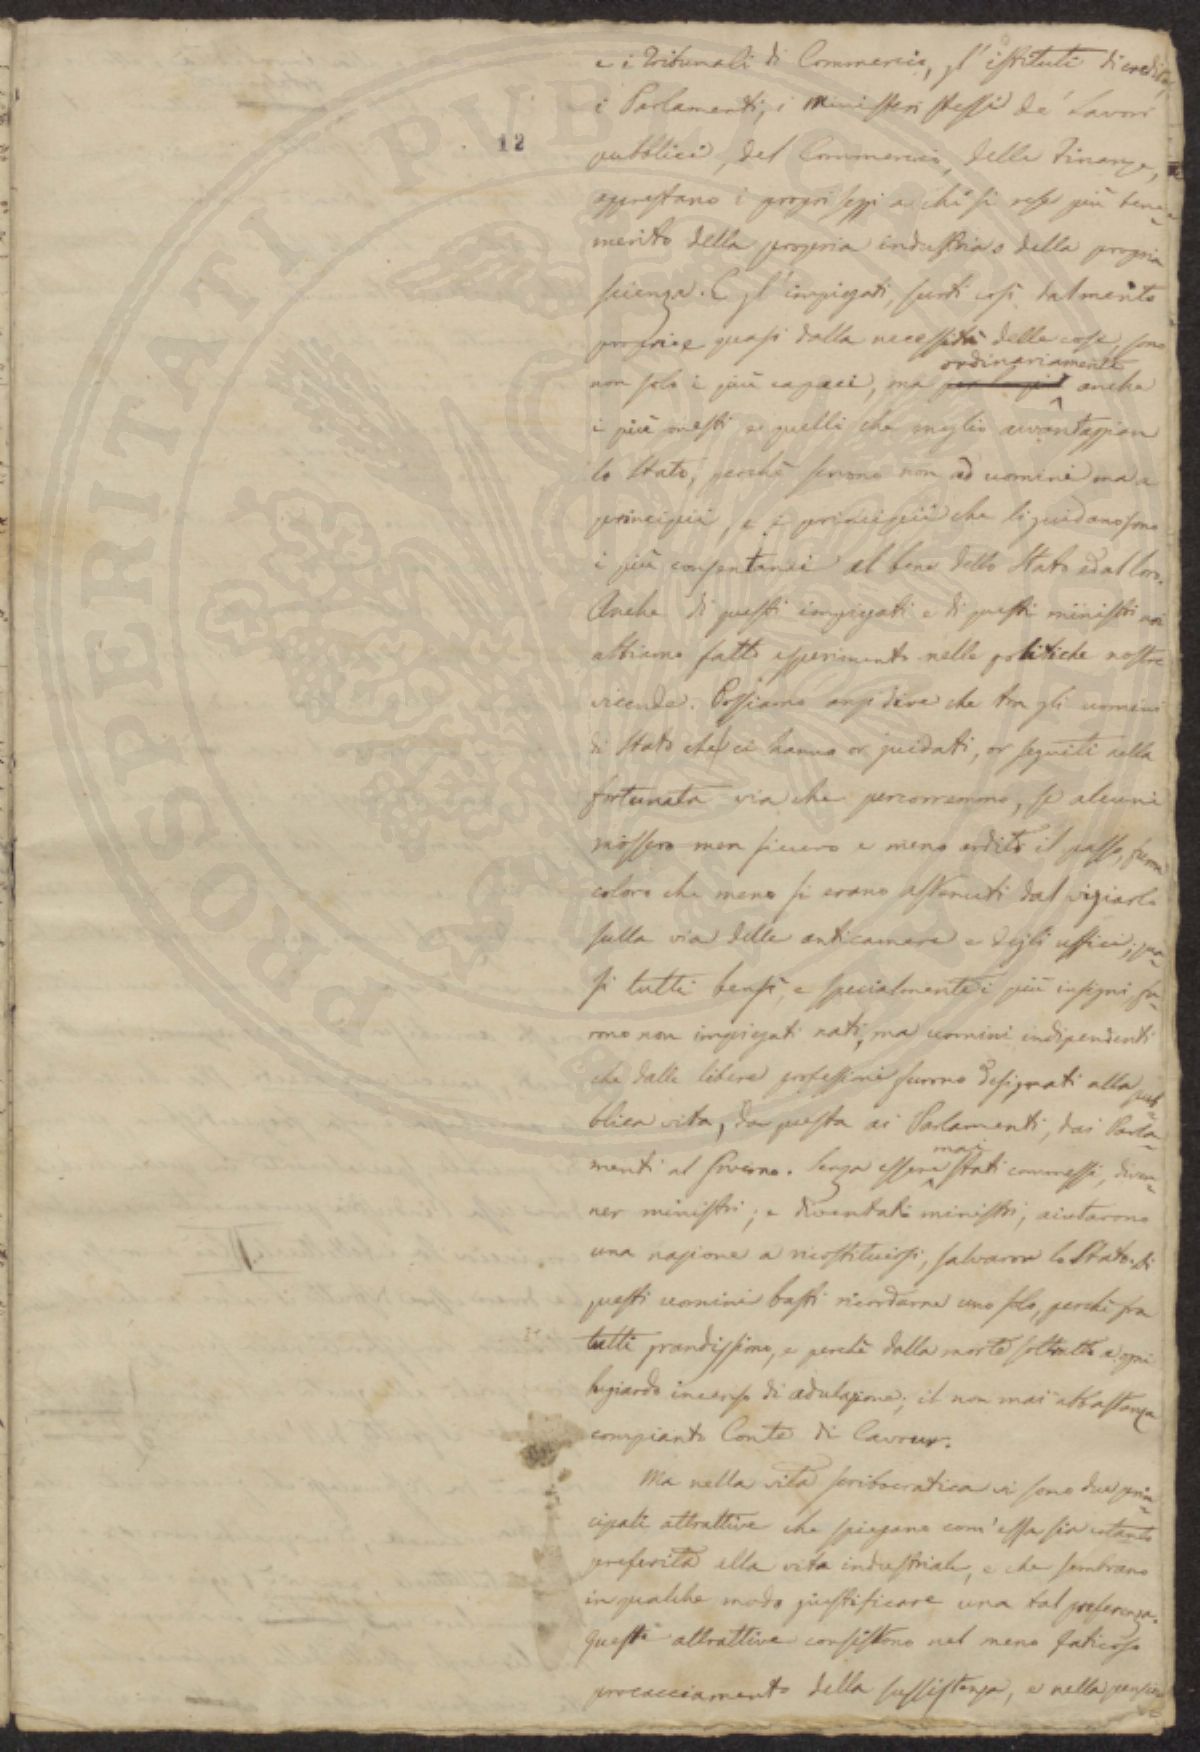 12
e i Tribunali di Commercio, gl'istituti di credito,
i Parlamenti, i Ministeri stessi de' Lavori
pubblici, del Commercio, delle Finanze,
apprestano i propri seggi a chi si rese più bene=
merito della propria industria o della propria
scienza. E gl'impiegati, surti così dal merito
proprio e quasi dalla necessità delle cose, sono
ordinariamente
non solo i più capaci, ma per lo più anche
i più onesti e quelli che meglio avvantaggian
lo Stato, perchè servono non ad uomini ma a
principii, e i principii che li guidano sono
i più consentanei al bene dello Stato ed al loro.
Anche di questi impiegati e di questi ministri noi
abbiamo fatto esperimento nelle politiche nostre
vicende. Possiamo anzi dire che tra gli uomini
di Stato che ci hanno or guidati, or seguiti nella
fortunata via che percorremmo, se alcuni
mossero men sicuro e meno ardito il passo, furon
coloro che meno si erano astenuti dal viziarlo
sulla via delle anticamere e degli uffici; qua=
si tutti bensì, e specialmente i più insigni, fu=
rono non impiegati nati, ma uomini indipendenti
che dalle libere professioni furono designati alla pub=
blica vita, da questa ai Parlamenti, dai Parla=
mai
menti al Governo. Senza essere stati commessi, diven=
ner ministri; e diventati ministri, aiutarono
una nazione a ricostituirsi, salvaron lo Stato. Di
questi uomini basti ricordarne uno solo, perchè fra
tutti grandissimo, e perchè dalla morte sottratto a ogni
bugiardo incenso di adulazione; il non mai abbastanza
compianto Conte di Cavour.
Ma nella vita scribocratica vi sono due prin=
cipali attrattive che spiegano com'essa sia cotanto
preferita alla vita industriale, e che sembrano
in qualche modo giustificare una tal preferenza.
Queste attrattive consistono nel meno faticoso
procacciamento della sussistenza, e nella pensio
PROSPERITATI PUBLICAE